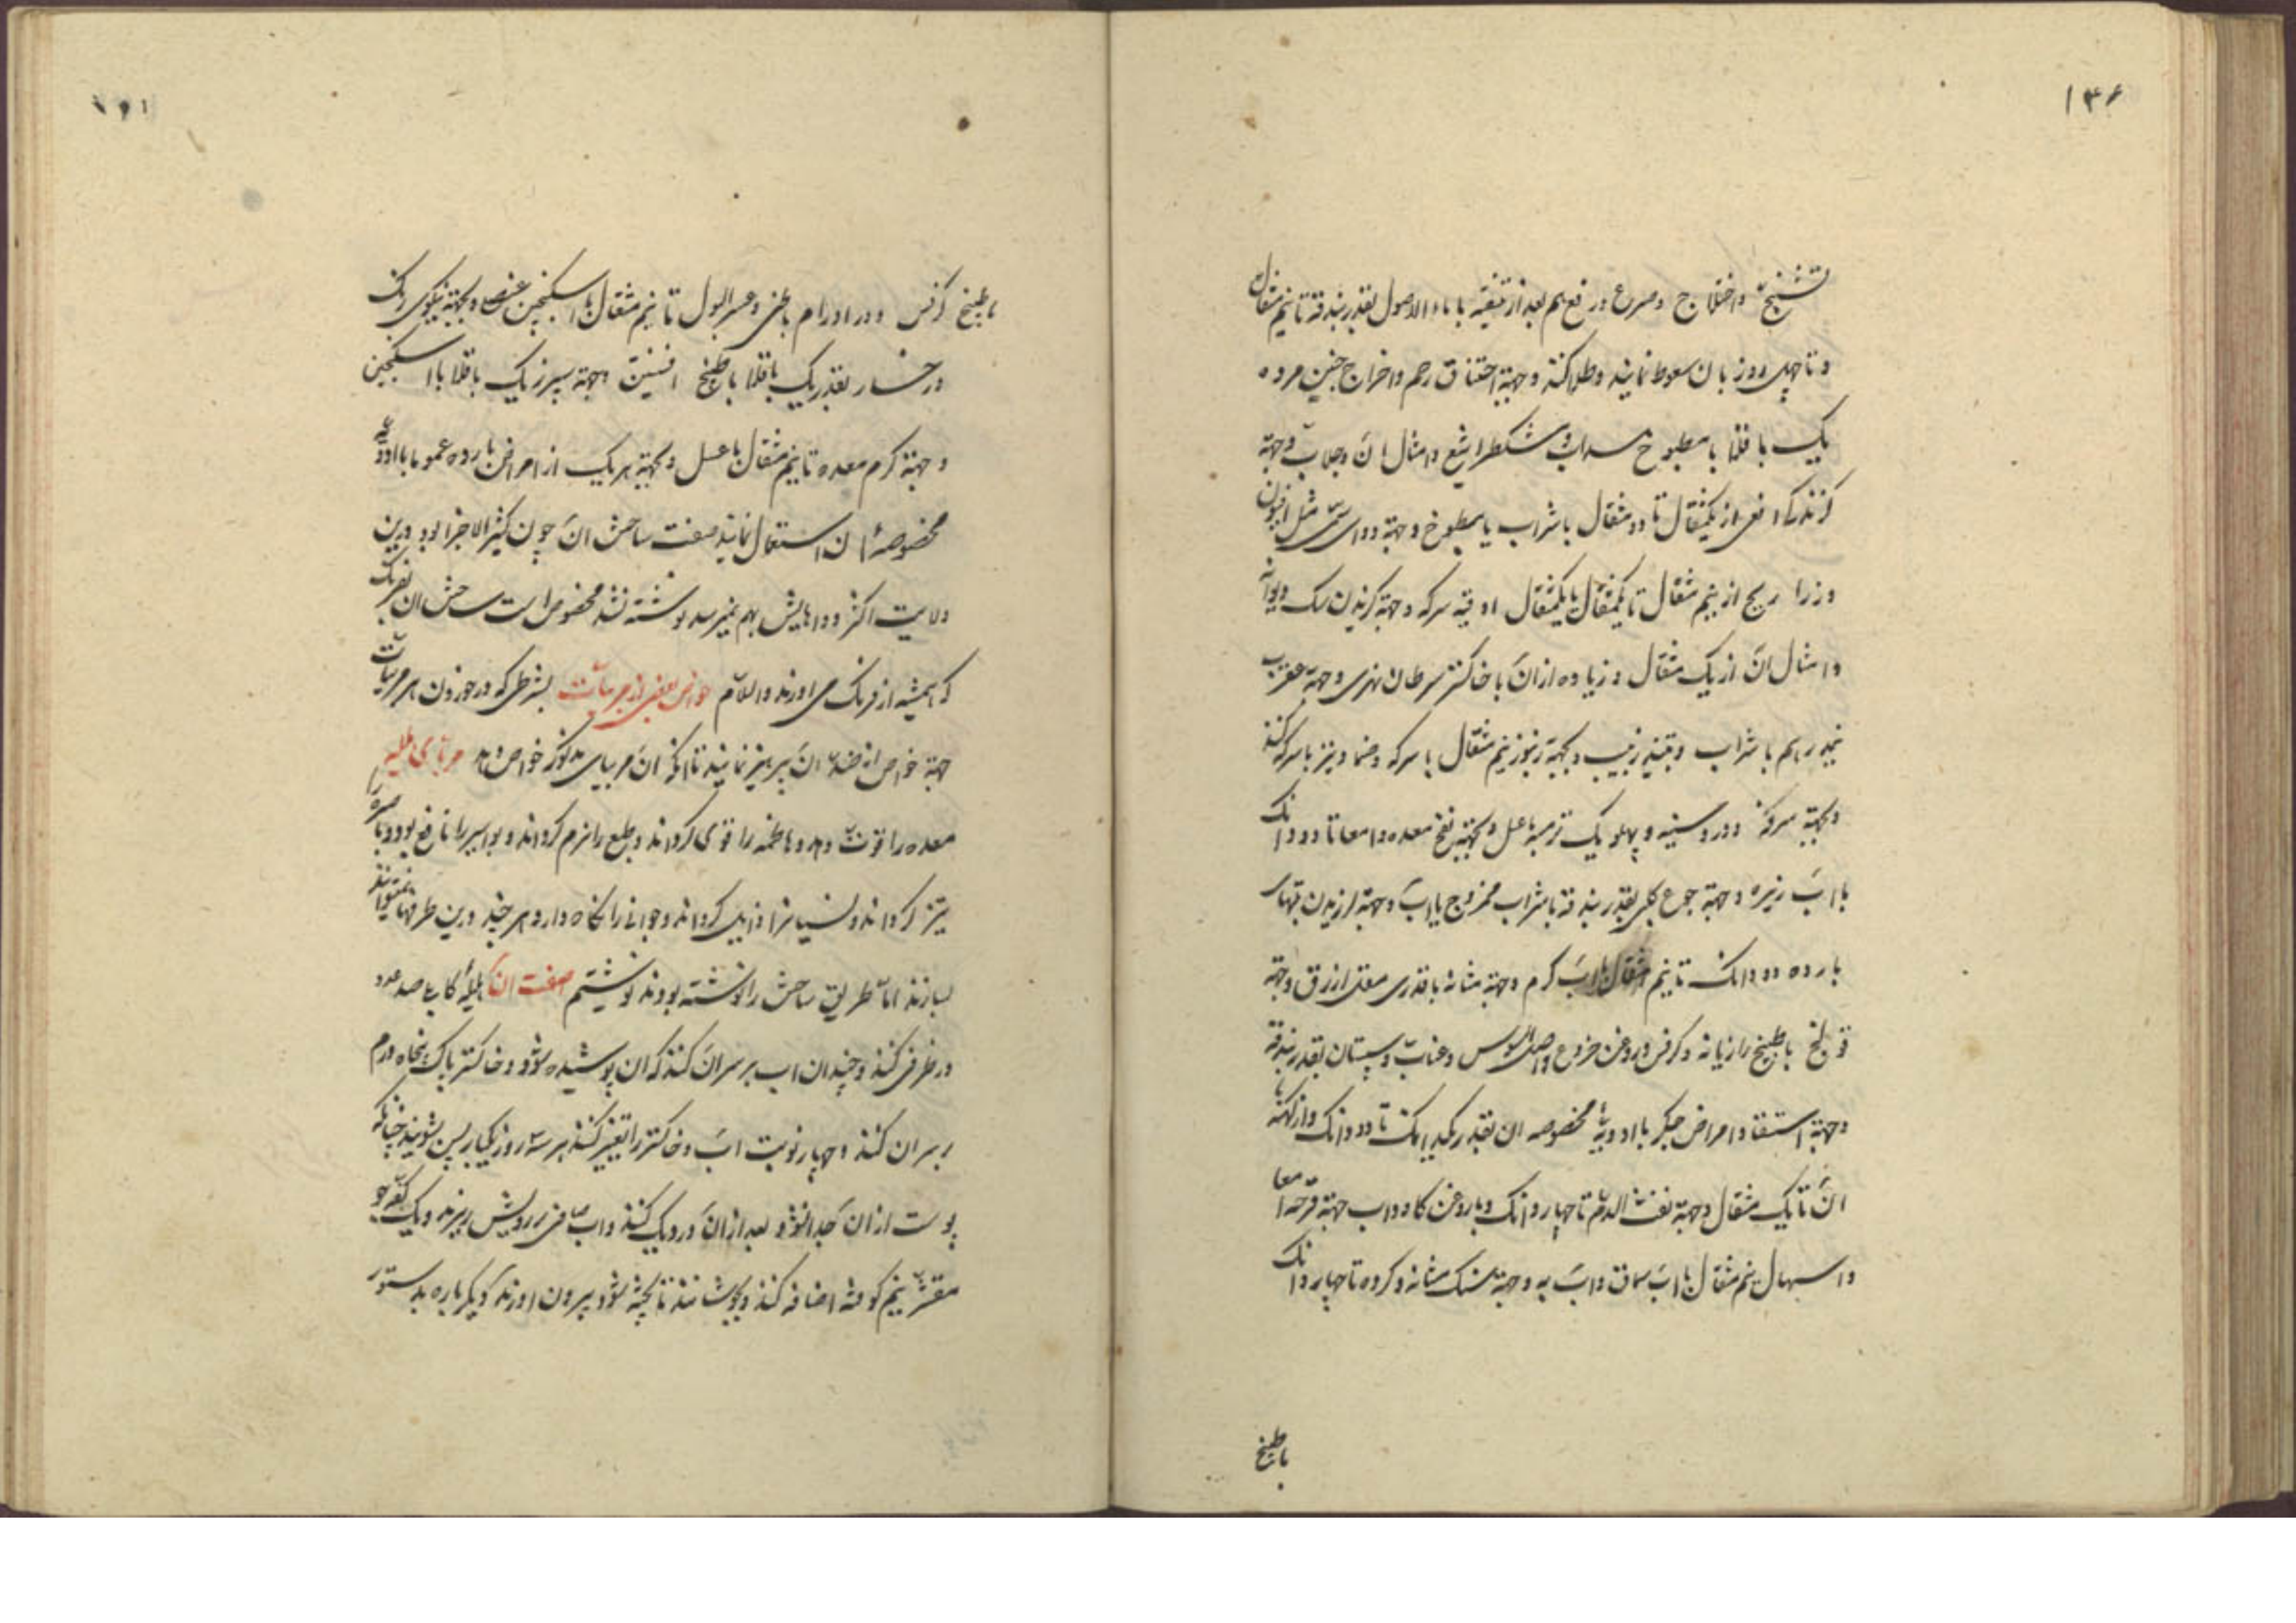 ۱۳۶
تشنج و اختلاج و صرع و ربع هم بعد از تنقیه با ماء الاصول بقدر بندقه تا نیم مثقال
و تا چهل روز بان سعوط نمایند و طلا کنند و جهة اختناق رحم و اخراج جنین مرده
یک باقلا با مطبوخ سداب و مشکطرامشیع و امثال ان و جلاب و جهة
کزندکی افعی از یکمثقال تا دو مثقال با شراب یا مطبوخ و جهة دوای سمی مثل افیون
و ذراریح از نیم مثقال تا یکمثقال با یکمثقال اوقیه سرکه و جهة کزیدن سک دیوانه
و امثال ان از یک مثقال و زیاده از ان با خاکستر سرطان نهری و جهة عقرب
نیمدرهم با شراب و نبیذ زبیب و بجهة زنبور نیم مثقال با سرکه و ضماد نیز با سرکه کنند
و بجهة سرفه و درد سینه و پهلو یک ترمسه با عسل و بجهة نفخ معده و امعا تا دو دانک
با اب زیره و جهة جوع کلبی بقدر بندقه با شراب ممزوج با اب و جهة لرزیدن تبهای
بارده دو دانک تا نیم مثقال با اب کرم و جهة مثانه با قدری مقل ازرق و جهة
قولنج با طبیخ رازیانه و کرفس و روغن خروع و اصل السوس و عناب و سپستان بقدر بندقه
و جهة استسقا و امراض جکر با ادویهٔ مخصوصه ان بقدر یکدانک تا دو دانک و از کهنهٔ
ان تا یک مثقال و جهة نفث الدم تا چهار دانک و با روغن کاو و اب جهة قرحه امعا
و اسهال نیم مثقال با اب سماق و اب به و جهة سنک مثانه و کرده تا چهار دانک
باطبیخ
باطبیخ کرفس و در اورام باطنی و عسر البول تا نیم مثقال با اسکنجبین عنصلی و بجهة نیکوی رنک
رخسار بقدر یک باقلا با طبیخ افسنتین و جهة سپرز یک باقلا با اسکنجبین
و جهة کرم معده تا نیم مثقال با عسل و بجهة هر یک از امراض بارده عموما با ادویه
مخصوصهٔ ان استعمال نمایند صفت ساختن ان چون کثیر الاجزا بود و درین
ولایت اکثر دواهایش بهم نمیرسد نوشته نشد مخصوص است ساختن ان بفرنک
که همیشه از فرنک می اورند والسلام خواص بعضی از مربیات بشرطی که در خوردن هر مربیات
جهة خواص از ضد ان پرهیز نمایند تا انکه ان مربیای مذکور خواص دهد مربای هلیله
معده را قوت دهد و هاضمه را قوی کرداند و طبع را نرم کرداند و بواسیر را نافع بود و باصره را
تیز کرداند و نسیانرا زایل کرداند و جوانی را نکاه دارد هر چند درین طرفها نمیتوانند
بسازند اما طریق ساختش را نوشته بودند نوشتیم صفت ان هلیلهٔ کابلی صد عدد
در ظرفی کنند و چندان اب بر سر ان کنند که ان پوشیده شود و خاکستر پاک پنجاه درم
بر سر ان کنند و چهار نوبت اب و خاکستر را تغییر کنند هر سه روز یکبار پس بشویند چنانکه
پوست از ان جدا نشود بعد از ان در دیک کنند و اب صافی بر رویش ریزند و یک کف جو
مقشر نیم کوفته اضافه کنند و بجوشانند تا پخته شود بیرون اورند و دیکر باره بدستور